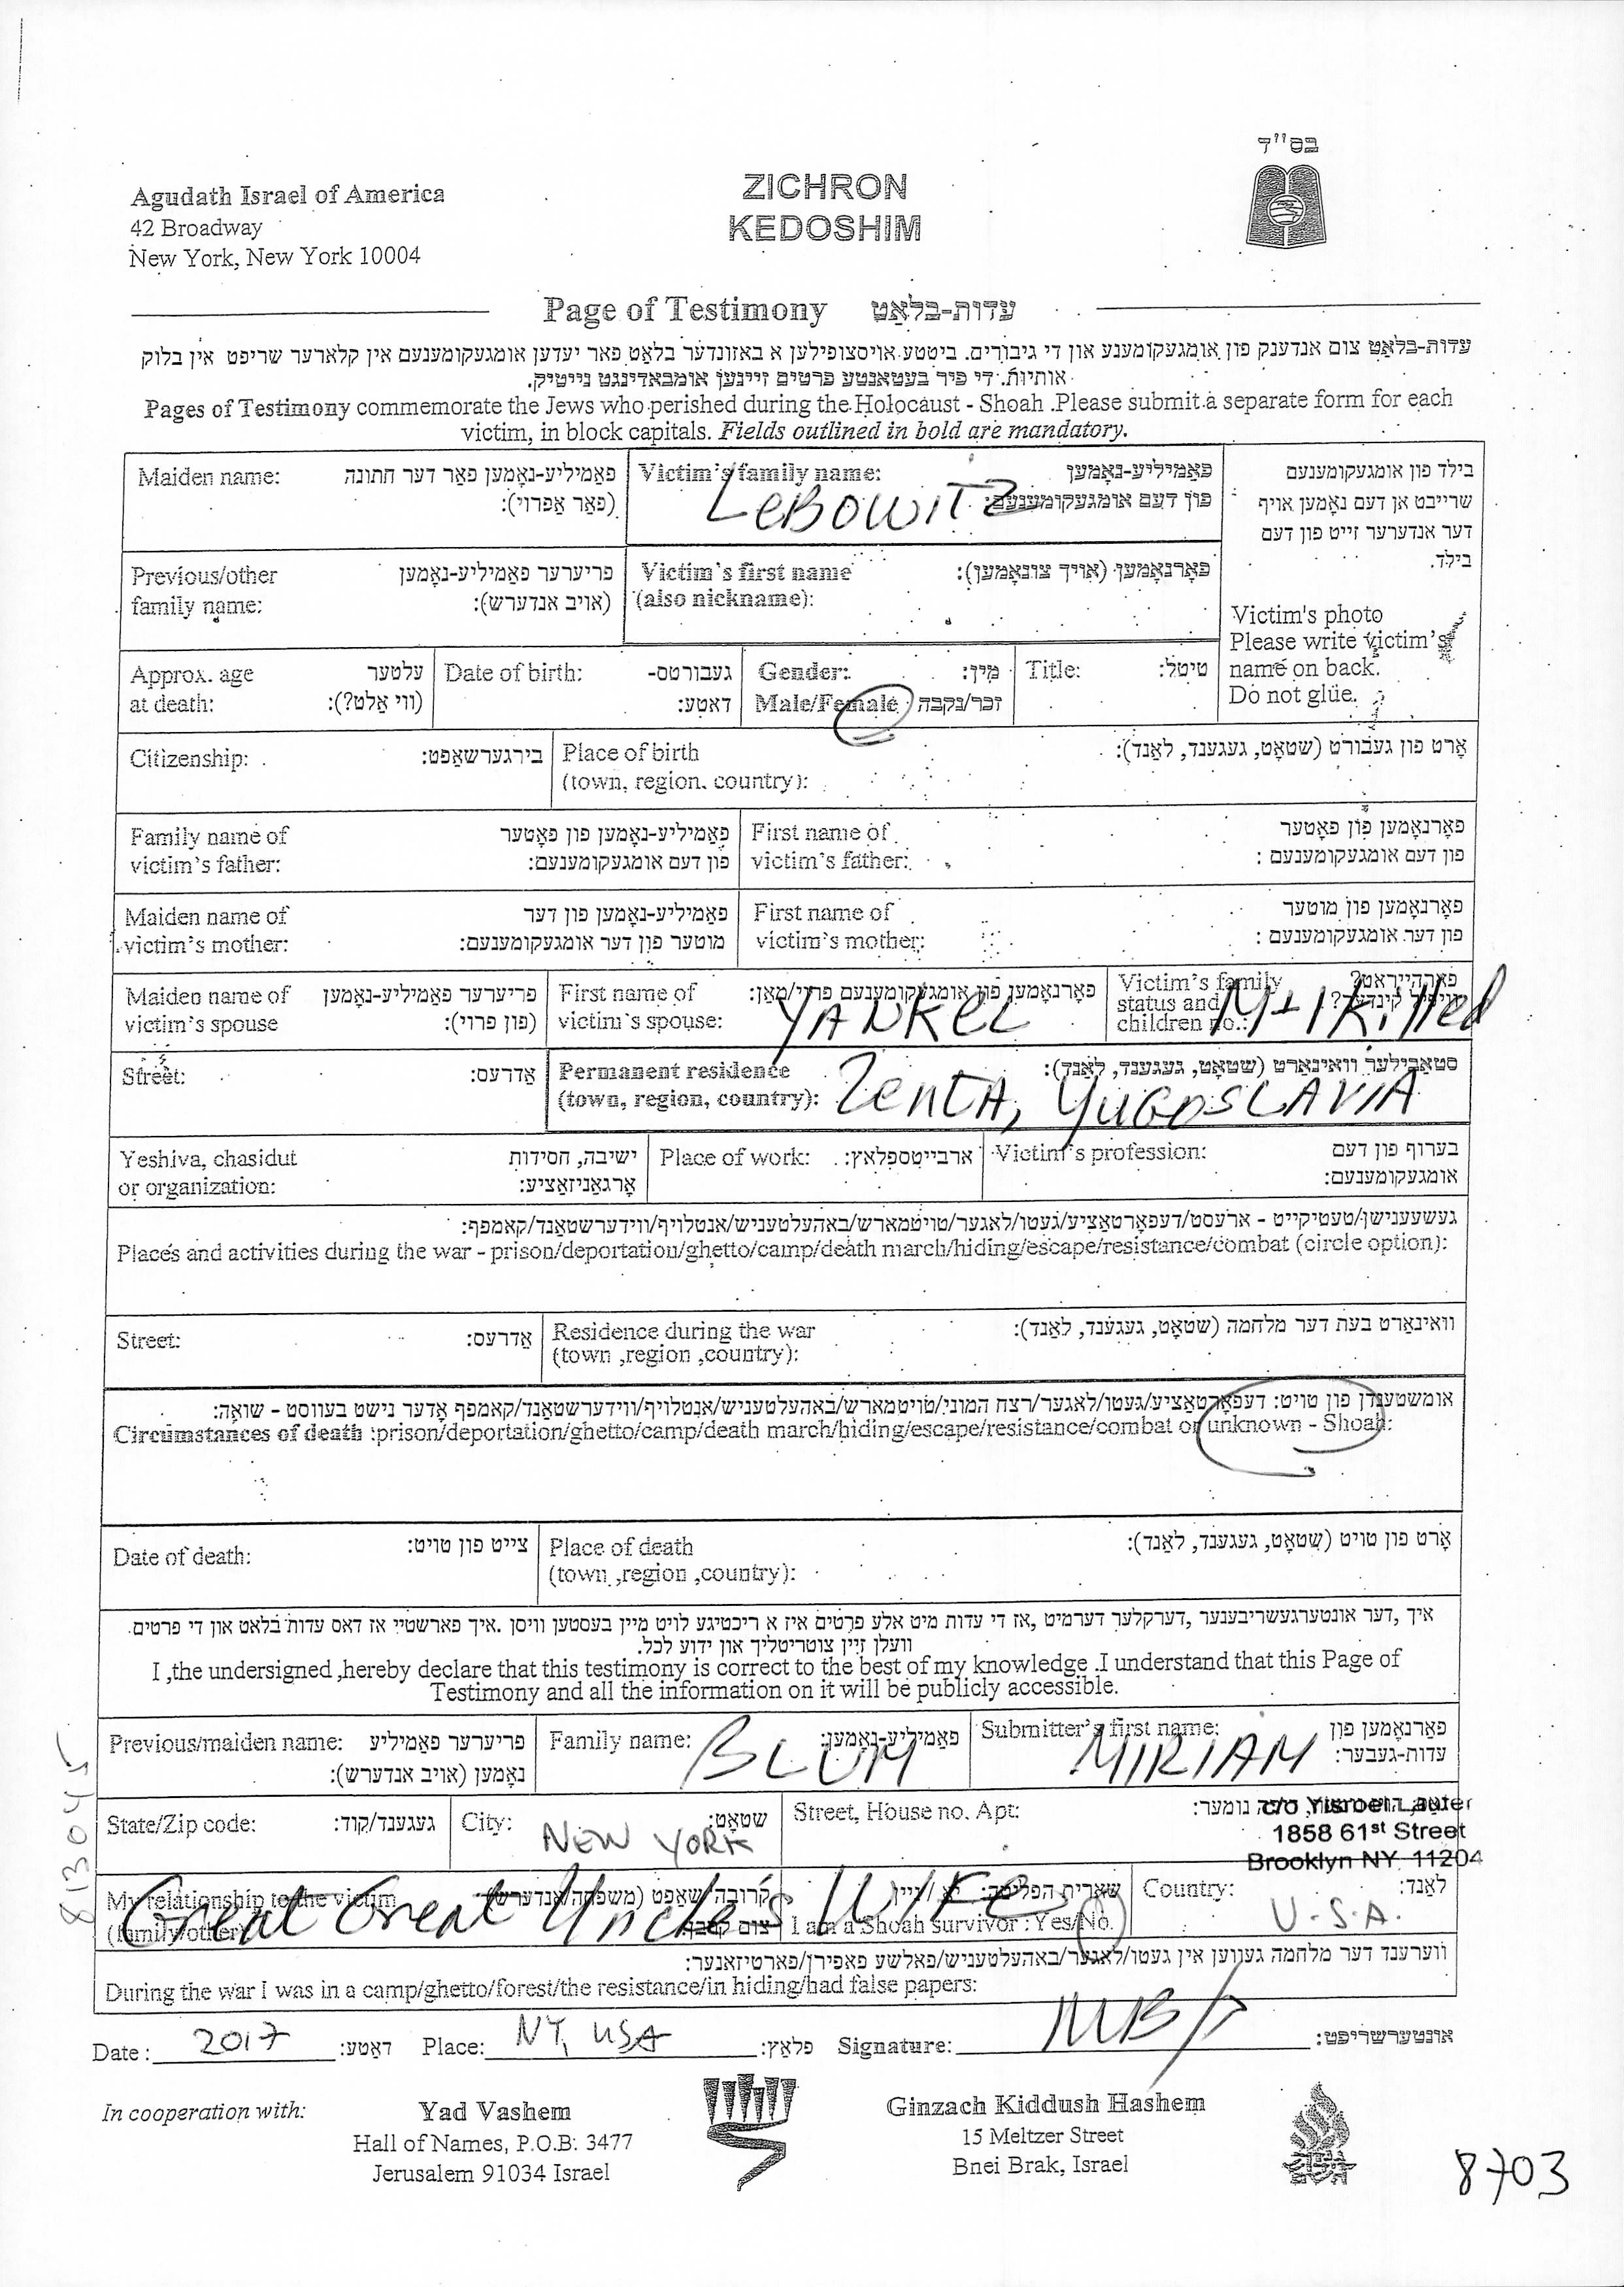 בס"ד
Agudath Israel of America
42 Broadway
New York, New York 10004
ZICHRON
KEDOSHIM
Page of Testimony עדות-בלאַט
עדות-בלאַט צום אנדענק פון אומגעקומענע און די גיבורים. ביטטע אויסצופילען א באזונדער בלאַט פאר יעדען אומגעקומענעם אין קלארער שריפט אין בלוק
אותיות. די פיר בעטאָנטע פרטים זיינען אומבאדינגט נייטיק.
Pages of Testimony commemorate the Jews who perished during the Holocaust - Shoah .Please submit a separate form for each
victim, in block capitals. Fields outlined in bold are mandatory.
Maiden name: פאַמיליע-נאָמען פאר דער חתונה
(פאַר אַפרוי):
Victim's family name: פאַמיליע-נאָמען
פון דעם אומגעקומענעם:
LEBOWITZ
בילד פון אומגעקומענעם
שרייבט אן דעם נאָמען אויף
דער אנדערער זייט פון דעם
בילד.
Victim's photo
Please write victim's
name on back.
Do not glue.
Previous/other פריערער פאַמיליע-נאָמען
family name: (אויב אנדערש):
Victim's first name פאָרנאָמען (אויך צונאָמען):
(also nickname):
Approx. age עלטער
at death: (ווי אַלט?):
Date of birth: געבורטס-
דאטע:
Gender: מין:
Male/Female זכר/נקבה
Title: טיטל:
Citizenship: בירגערשאַפט:
Place of birth אָרט פון געבורט (שטאָט, געגענד, לאַנד):
(town, region, country):
Family name of פאַמיליע-נאָמען פון פאָטער
victim's father: פון דעם אומגעקומענעם:
First name of פאָרנאָמען פון פאָטער
victim's father: פון דעם אומגעקומענעם :
Maiden name of פאַמיליע-נאָמען פון דער
victim's mother: מוטער פון דער אומגעקומענעם:
First name of פאָרנאָמען פון מוטער
victim's mother: פון דער אומגעקומענעם :
Maiden name of פריערער פאַמיליע-נאָמען
victim's spouse (פון פרוי):
First name of פאָרנאָמען פון אומגעקומענעם פרוי/מאַן:
victim's spouse: YANKEL
Victim's family פארהייראט?
status and
children no.: M+1 killed
Street: אַדרעס:
Permanent residence סטאַבילער וואוינאָרט (שטאָט, געגענד, לאַנד):
(town, region, country): ZENTA, YUGOSLAVIA
Yeshiva, chasidut ישיבה, חסידות
or organization: אָרגאַניזאַציע:
Place of work: ארבייטספלאץ:
Victim's profession: בערוף פון דעם
אומגעקומענעם:
געשעענישן/טעטיקייט - ארעסט/דעפאָרטאַציע/געטו/לאגער/טויטמארש/באהעלטעניש/אנטלויף/ווידערשטאַנד/קאמפף:
Places and activities during the war - prison/deportation/ghetto/camp/death march/hiding/escape/resistance/combat (circle option):
Street: אַדרעס:
Residence during the war וואוינאָרט בעת דער מלחמה (שטאָט, געגענד, לאַנד):
(town ,region ,country):
אומשטענדן פון טויט: דעפאָרטאַציע/געטו/לאגער/רצח המוני/טויטמארש/באהעלטעניש/אנטלויף/ווידערשטאַנד/קאמפף אָדער נישט בעוואוסט - שואה:
Circumstances of death :prison/deportation/ghetto/camp/death march/hiding/escape/resistance/combat or unknown - Shoah:
Date of death: צייט פון טויט:
Place of death אָרט פון טויט (שטאָט, געגענד, לאַנד):
(town ,region ,country):
איך ,דער אונטערגעשריבענער ,דערקלער דערמיט ,אז די עדות מיט אלע פרטים איז א ריכטיגע לויט מיין בעסטען וויסן .איך פארשטיי אז דאס עדות בלאט און די פרטים
וועלן זיין צוטריטליך און ידוע לכל.
I ,the undersigned ,hereby declare that this testimony is correct to the best of my knowledge .I understand that this Page of
Testimony and all the information on it will be publicly accessible.
Previous/maiden name: פריערער פאַמיליע
נאָמען (אויב אנדערש):
Family name: פאַמיליע-נאָמען:
BLUM
Submitter's first name: פאָרנאָמען פון
עדות-געבער:
MIRIAM
State/Zip code: געגענד/קוד:
City: שטאָט:
NEW YORK
Street, House no. Apt: נומער:
c/o Yisroel Lauter
1858 61st Street
Brooklyn NY 11204
My relationship to the victim קרובה/שאַפט (משפחה/אנדערש)
(family/other)
Great Great Uncle's WIFE
שארית הפליטה:
I am a Shoah survivor : Yes/No.
Country: לאנד:
U.S.A.
ווערענד דער מלחמה געווען אין געטו/לאגער/באהעלטעניש/פאלשע פאפירן/פארטיזאנער:
During the war I was in a camp/ghetto/forest/the resistance/in hiding/had false papers:
Date : 2017 דאַטע: Place: NY, USA פלאַץ: Signature: MB אונטערשריפט:
In cooperation with:
Yad Vashem
Hall of Names, P.O.B: 3477
Jerusalem 91034 Israel
Ginzach Kiddush Hashem
15 Meltzer Street
Bnei Brak, Israel
8703
813045